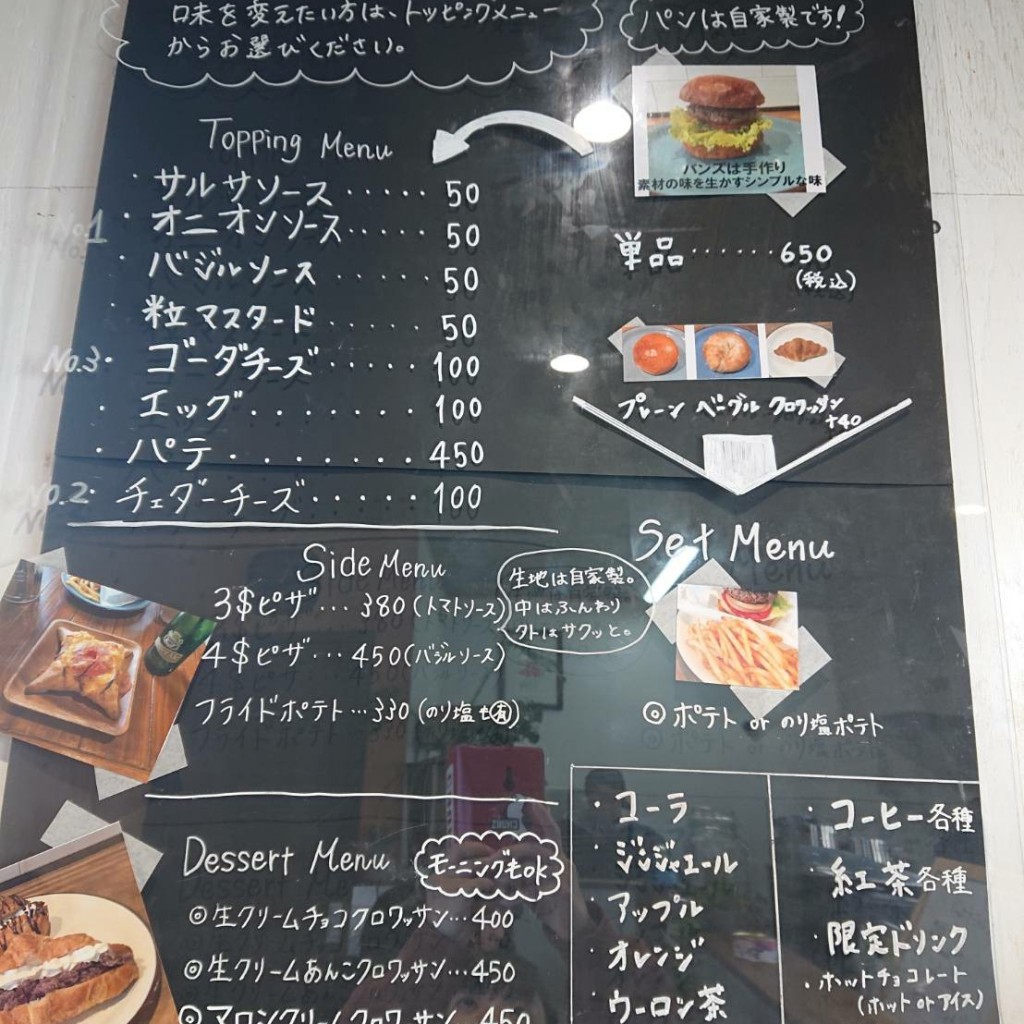 味を変えたい方は、トッピングメニュー
からお選びください。
パンは自家製です!
バンズは手作り
素材の味を生かすシンプルな味
Topping Menu
・サルサソース・・・・・ 50
No.1 ・オニオンソース・・・・・ 50
・バジルソース・・・・・ 50
・粒マスタード・・・・・ 50
No.3・ゴーダチーズ・・・・・ 100
・エッグ・・・・・・・ 100
・パテ・・・・・・・ 450
No.2・チェダーチーズ・・・・・ 100
単品・・・・・・650
(税込)
プレーン ベーグル クロワッサン
+40
Side Menu
3$ピザ・・・380(トマトソース)
4$ピザ・・・450(バジルソース)
フライドポテト・・・330(のり塩も有)
生地は自家製。
中はふんわり
外はサクッと。
Set Menu
◎ポテト or のり塩ポテト
・コーラ
・ジンジャエール
・アップル
・オレンジ
・ウーロン茶
・コーヒー各種
・紅茶各種
限定ドリンク
・ホットチョコレート
(ホット or アイス)
Dessert Menu
モーニングもOK
◎生クリームチョコクロワッサン・・・400
◎生クリームあんこクロワッサン・・・450
◎マロンクリームクロワッサン 450